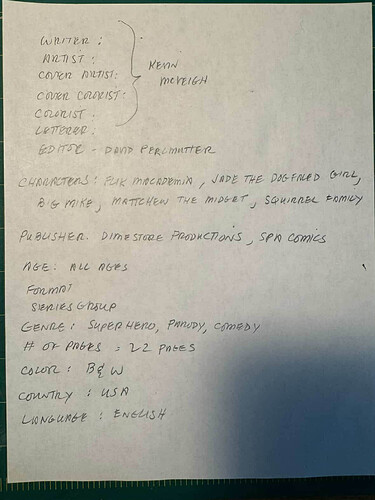 WRITER :
ARTIST :
COVER ARTIST:
COVER COLORIST:
COLORIST.
LETTERER :
KEVIN
MCVEIGH
EDITOR - DAVID PERLMUTTER
CHARACTERS: FLIK MACADEMIA, JADE THE DOGFACED GIRL,
BIG MIKE, MATTCHEW THE MIDGET, SQUIRREL FAMILY
PUBLISHER. DIMESTORE PRODUCTIONS, SPA COMICS
AGE: ALL AGES
FORMAT
SERIES GROUP
GENRE: SUPERHERO, PARODY, COMEDY
# OF PAGES = 22 PAGES
COLOR: B&W
COUNTRY: USA
LANGUAGE: ENGLISH